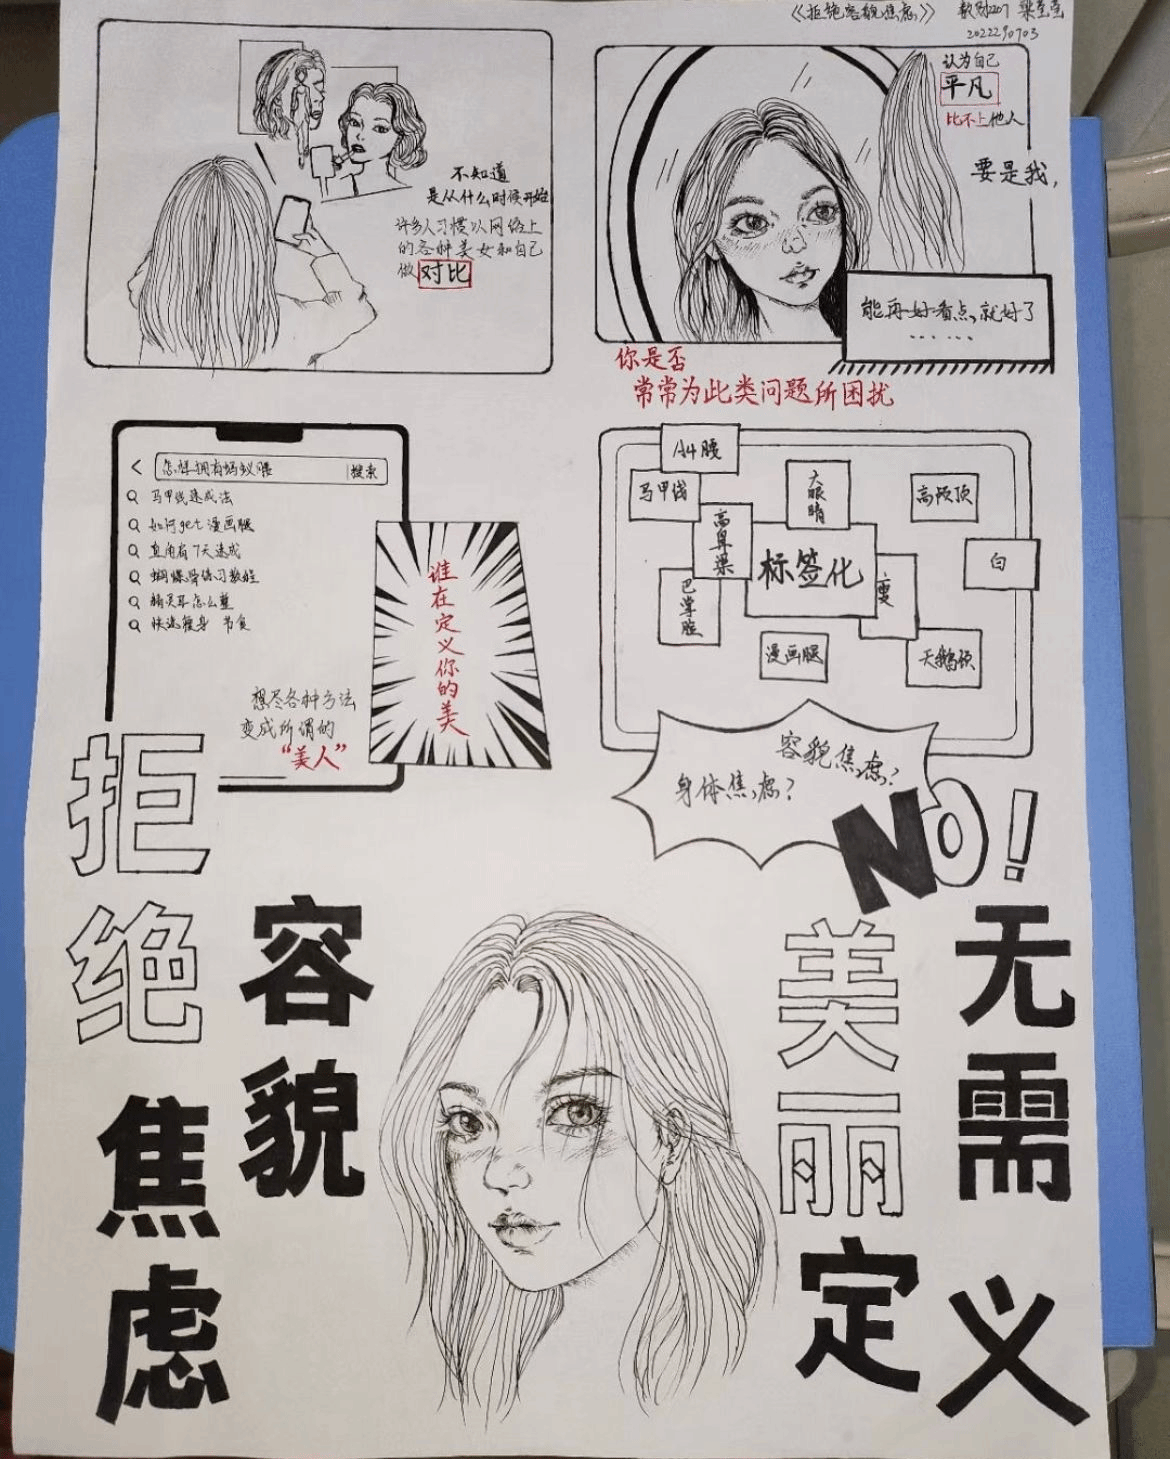 《拒绝容貌焦虑》
不知道
是从什么时候开始
许多人习惯以网络上
的各种美女和自己
做对比
认为自己
平凡
比不上他人
要是我,
能再好看点,就好了
……
你是否
常常为此类问题所困扰
< 怎样拥有蚂蚁腰 搜索
马甲线速成法
如何get漫画腿
直角肩7天速成
蝴蝶骨练习教程
精灵耳怎么整
快速瘦身 节食
想尽各种方法
变成所谓的
“美人”
谁在定义你的美
A4腰
马甲线
高鼻梁
大眼睛
高颅顶
标签化
白
巴掌脸
漫画腿
天鹅颈
容貌焦虑?
身体焦虑?
NO!
拒绝
容貌
焦虑
美丽
无需
定义